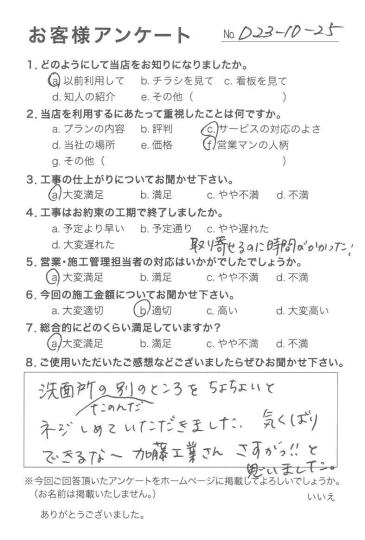 お客様アンケート No. D23-10-25
1. どのようにして当店をお知りになりましたか。
a. 以前利用して b. チラシを見て c. 看板を見て
d. 知人の紹介 e. その他（ ）
2. 当店を利用するにあたって重視したことは何ですか。
a. プランの内容 b. 評判 c. サービスの対応のよさ
d. 当社の場所 e. 価格 f. 営業マンの人柄
g. その他（ ）
3. 工事の仕上がりについてお聞かせ下さい。
a. 大変満足 b. 満足 c. やや不満 d. 不満
4. 工事はお約束の工期で終了しましたか。
a. 予定より早い b. 予定通り c. やや遅れた
d. 大変遅れた 取り寄せるのに時間がかかった!
5. 営業・施工管理担当者の対応はいかがでしたでしょうか。
a. 大変満足 b. 満足 c. やや不満 d. 不満
6. 今回の施工金額についてお聞かせ下さい。
a. 大変適切 b. 適切 c. 高い d. 大変高い
7. 総合的にどのくらい満足していますか?
a. 大変満足 b. 満足 c. やや不満 d. 不満
8. ご使用いただいたご感想などございましたらぜひお聞かせ下さい。
洗面所の別のところをちょちょいと
たのんだ
ネジしめていただきました。 気くばり
できるな〜 加藤工業さん さすがっ!!と
思いました。
※今回ご回答頂いたアンケートをホームページに掲載してよろしいでしょうか。
（お名前は掲載いたしません。） いいえ
ありがとうございました。